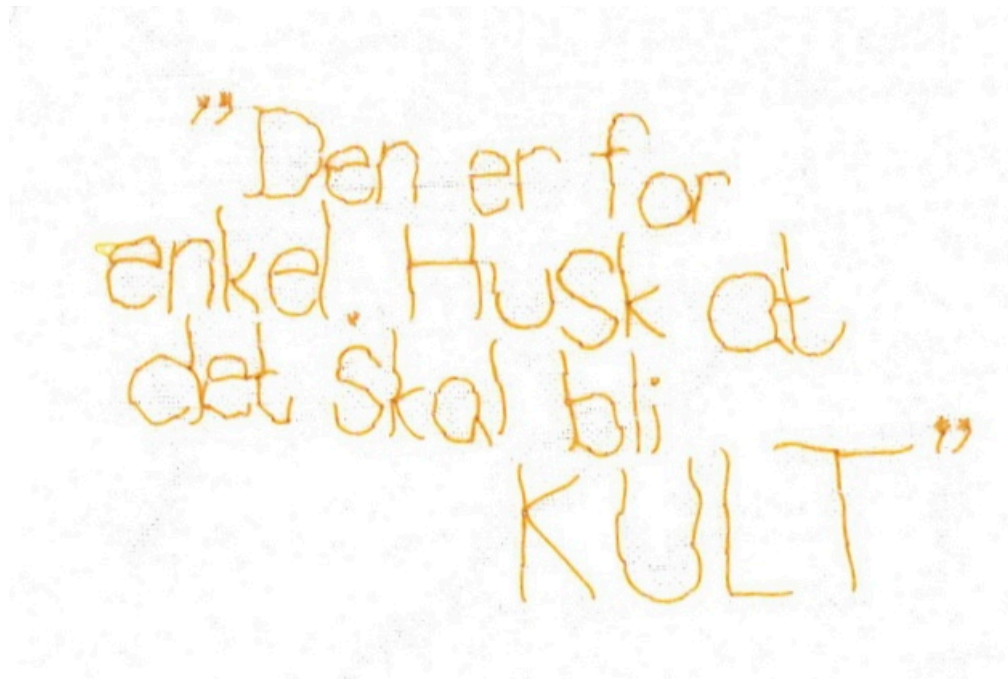 ”Den er for
enkel. Husk at
det skal bli
KULT”